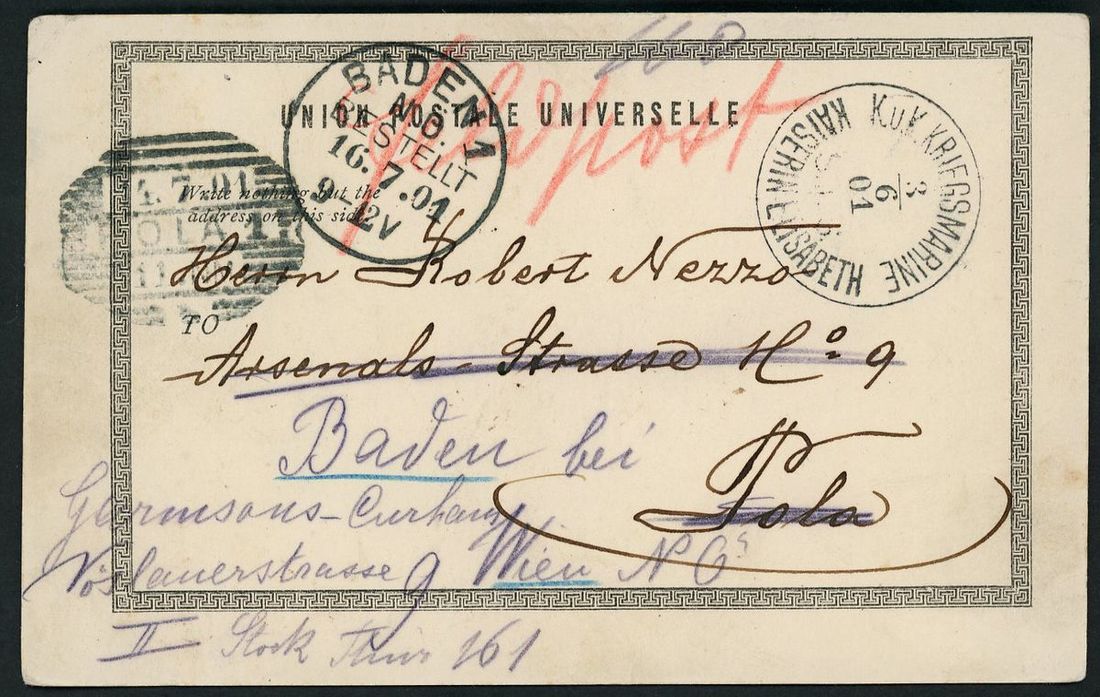 UNION POSTALE UNIVERSELLE
Feldpost
BADEN 1
N.Ö.
BESTELLT
16.7.01
9-12V
K.u.K. KRIEGSMARINE
KAISERIN ELISABETH
3
6
01
4.7.01
POLA 1
11
Write nothing but the
address on this side.
TO
Herrn Robert Nezzo
Arsenals-Strasse No 9
Pola
Baden bei
Wien
Garnisons-Curhaus
Vöslauerstrasse 9
II Stock Thür 161